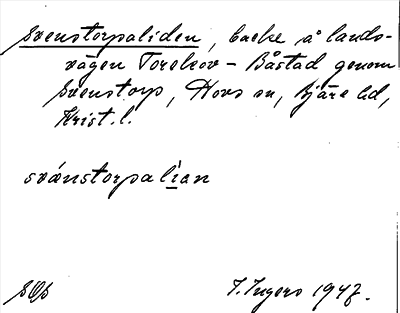 Svenstorpaliden, backe å lands-
vägen Torekov - Båstad genom
Svenstorp, Hovs sn, Bjäre hd,
Krist. l.
svánstorpalían
I. Ingers 1947.